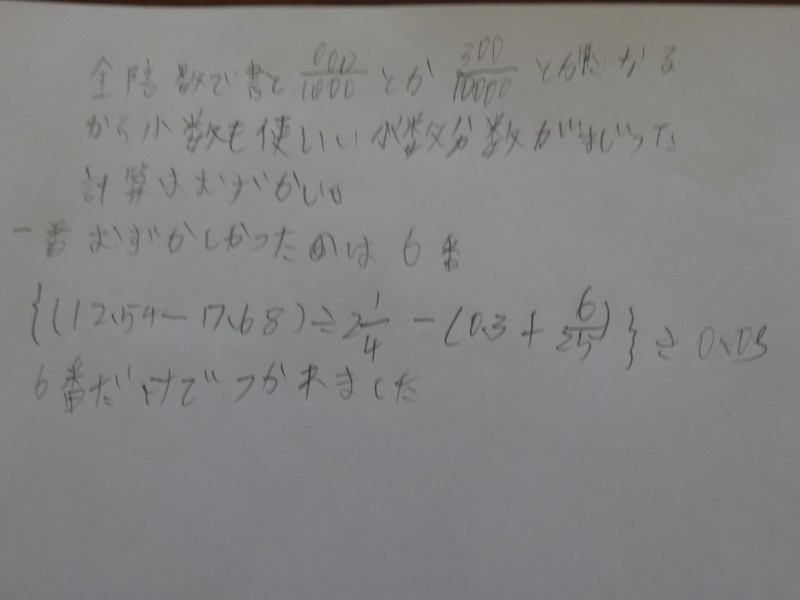 数で書と 000/1000 とか 300/10000 とか かる
から小数も使いい小数分数がまじった
計算はむずかしい。
一番むずかしかったのは6番
{(12.54-17.68)÷2 1/4-(0.3+6/25)}÷0.03
6番だけでつかれました